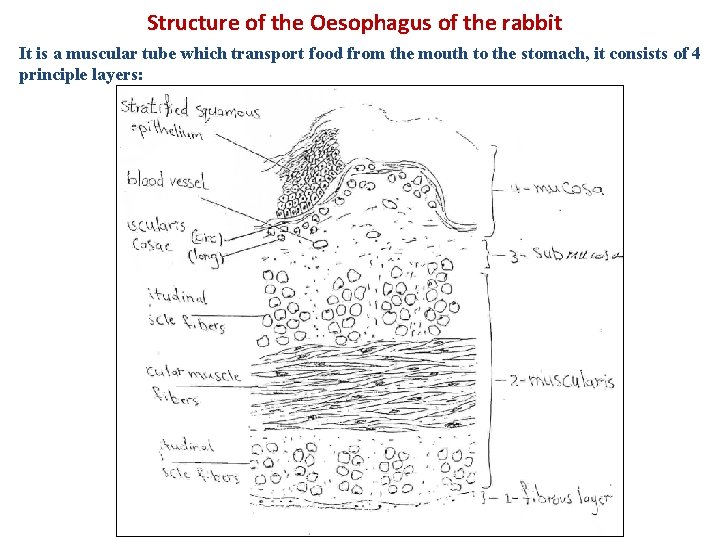 Structure of the Oesophagus of the rabbit
It is a muscular tube which transport food from the mouth to the stomach, it consists of 4
principle layers:
stratified squamous
epithelium
blood vessel
iscularis (circ)
cosae (long)
itudinal
scle fibers
cular muscle
fibers
itudinal
scle fibers
4-mucosa
3-submucosa
2-muscularis
1-fibrous layer